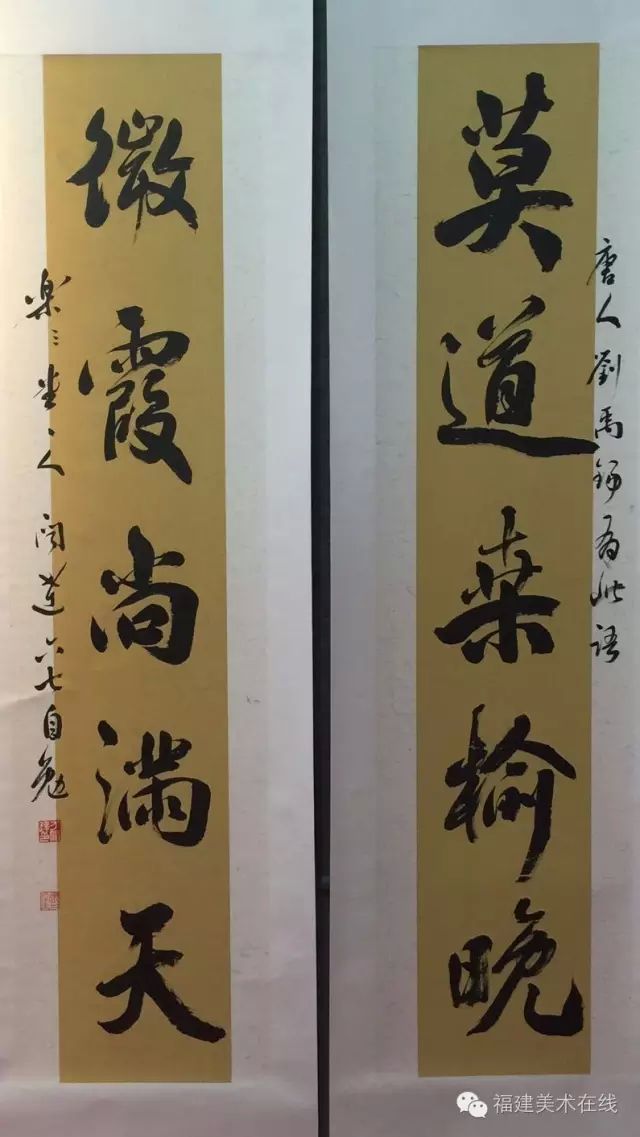 莫道桑榆晚
唐人劉禹錫有此語
微霞尚滿天
樂三堂人閱道六七自勉
福建美术在线